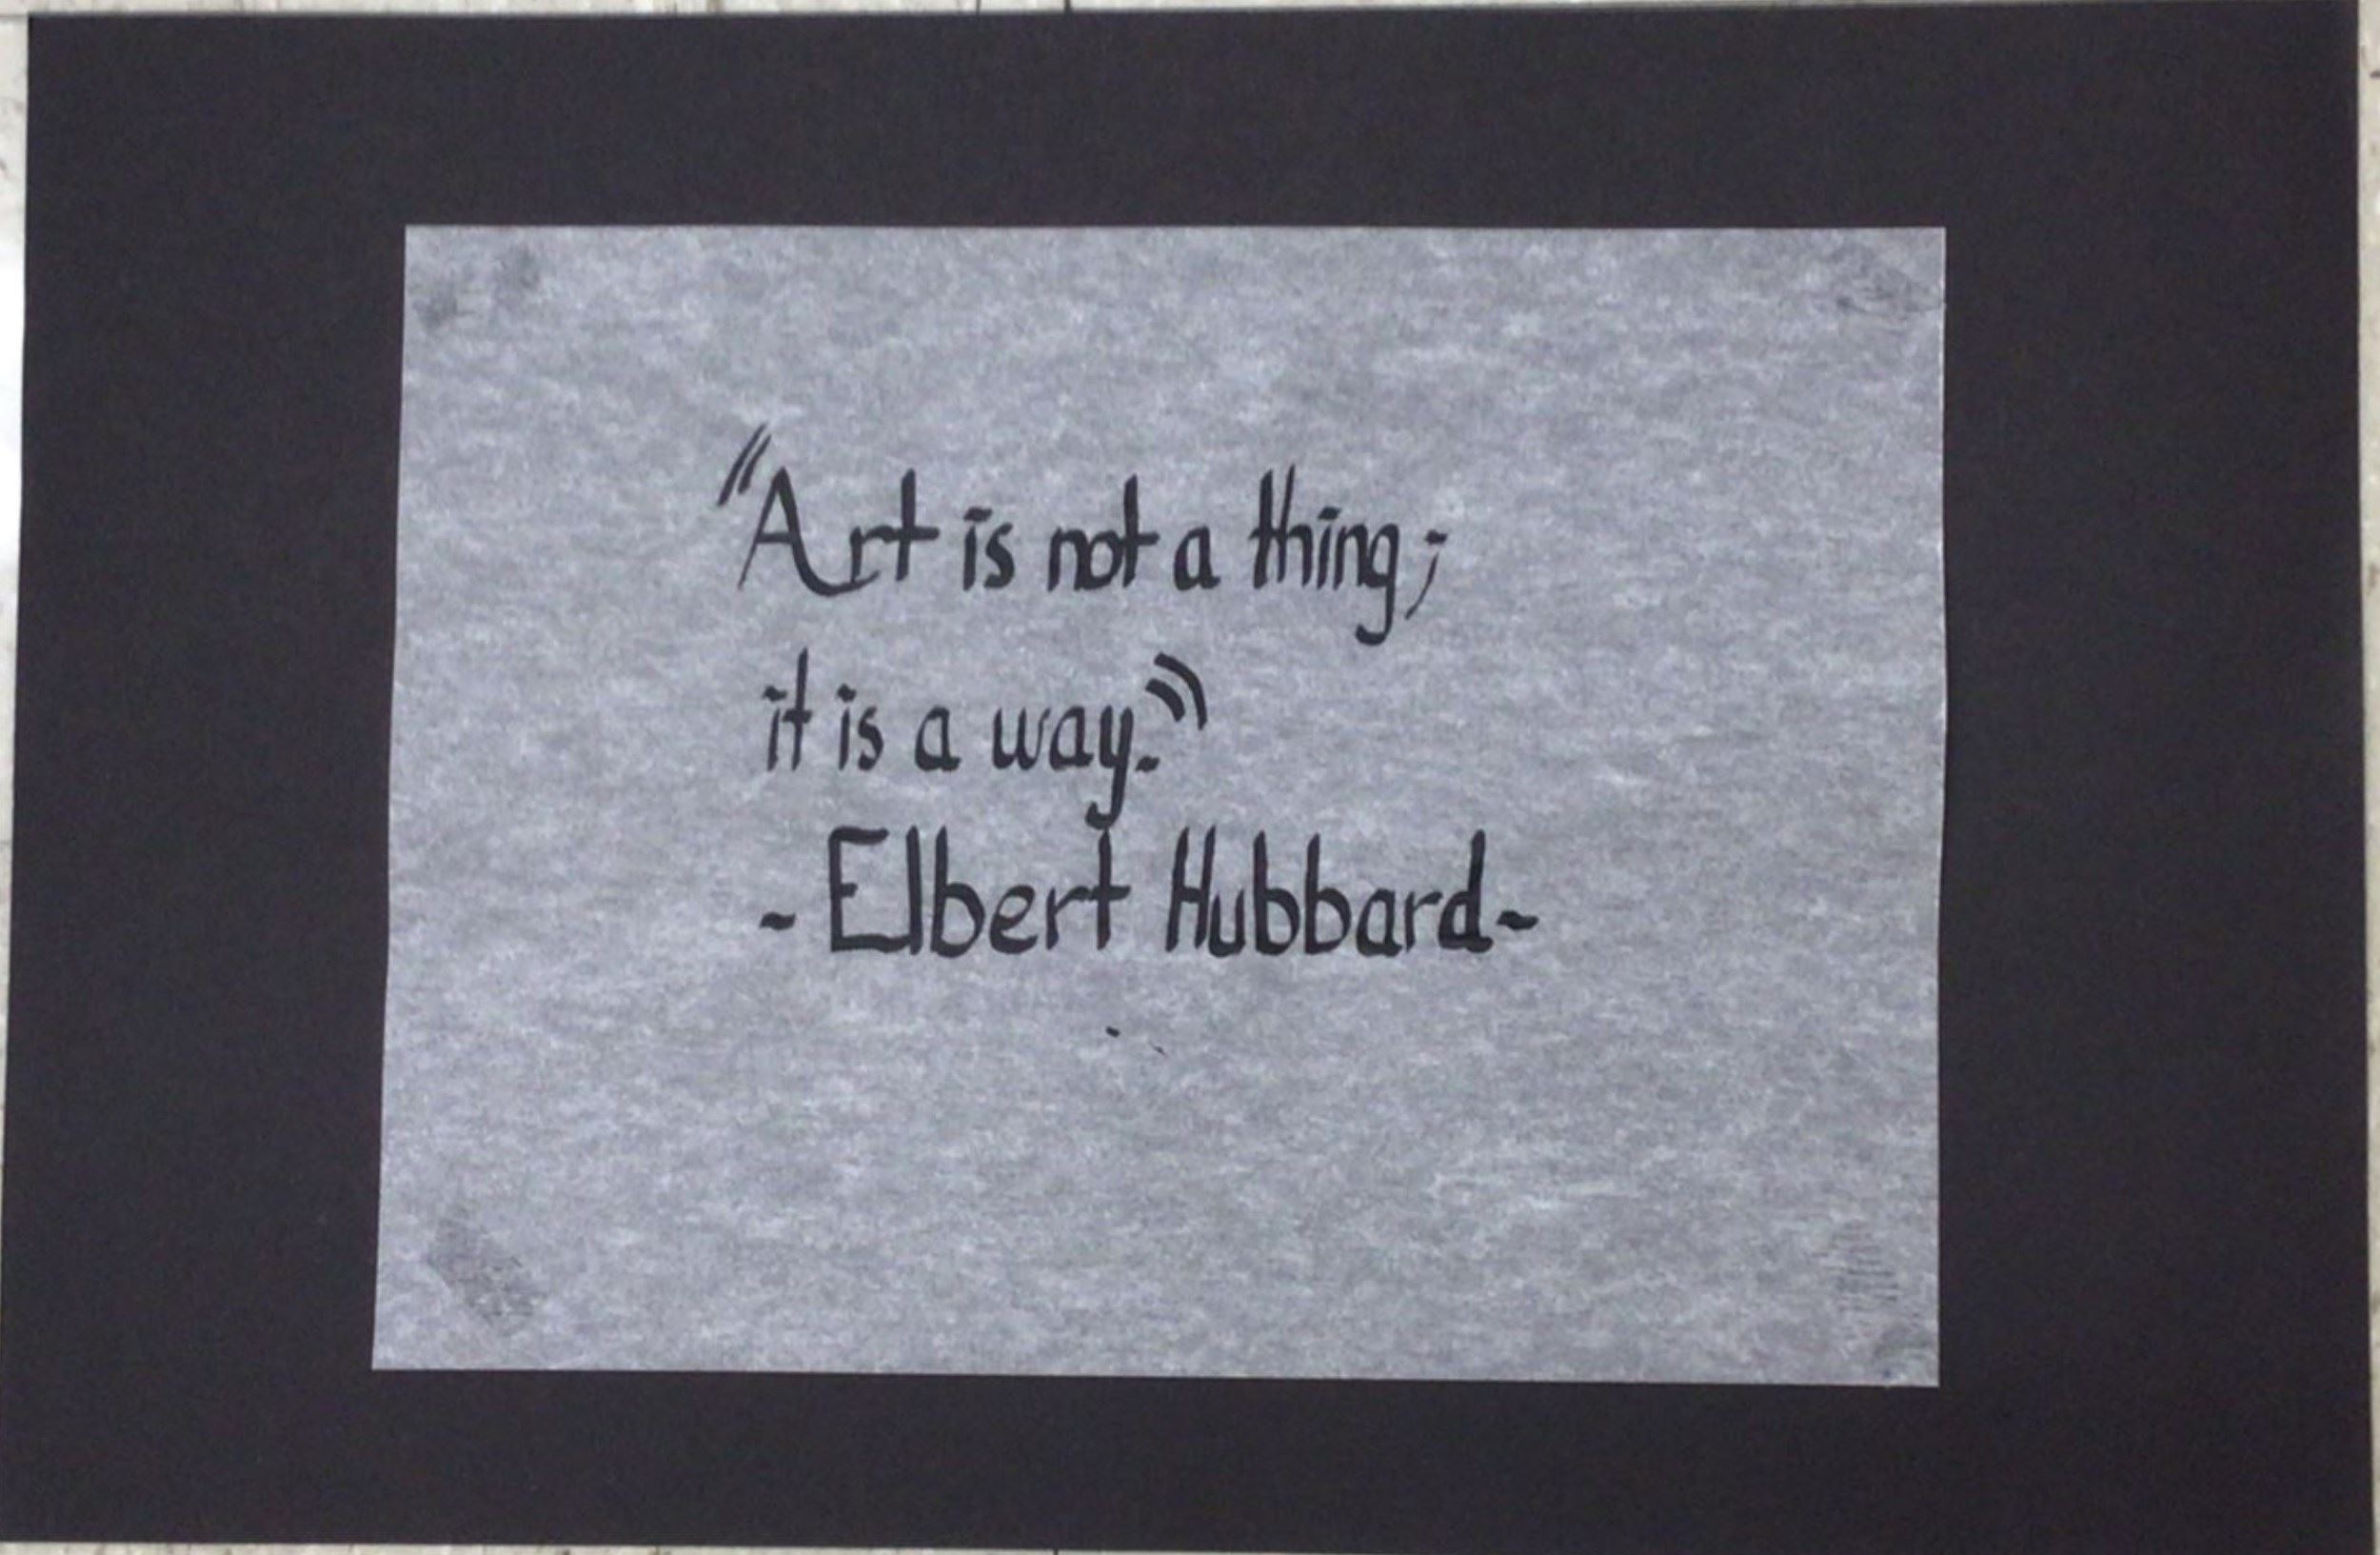 "Art is not a thing;
it is a way."
- Elbert Hubbard-